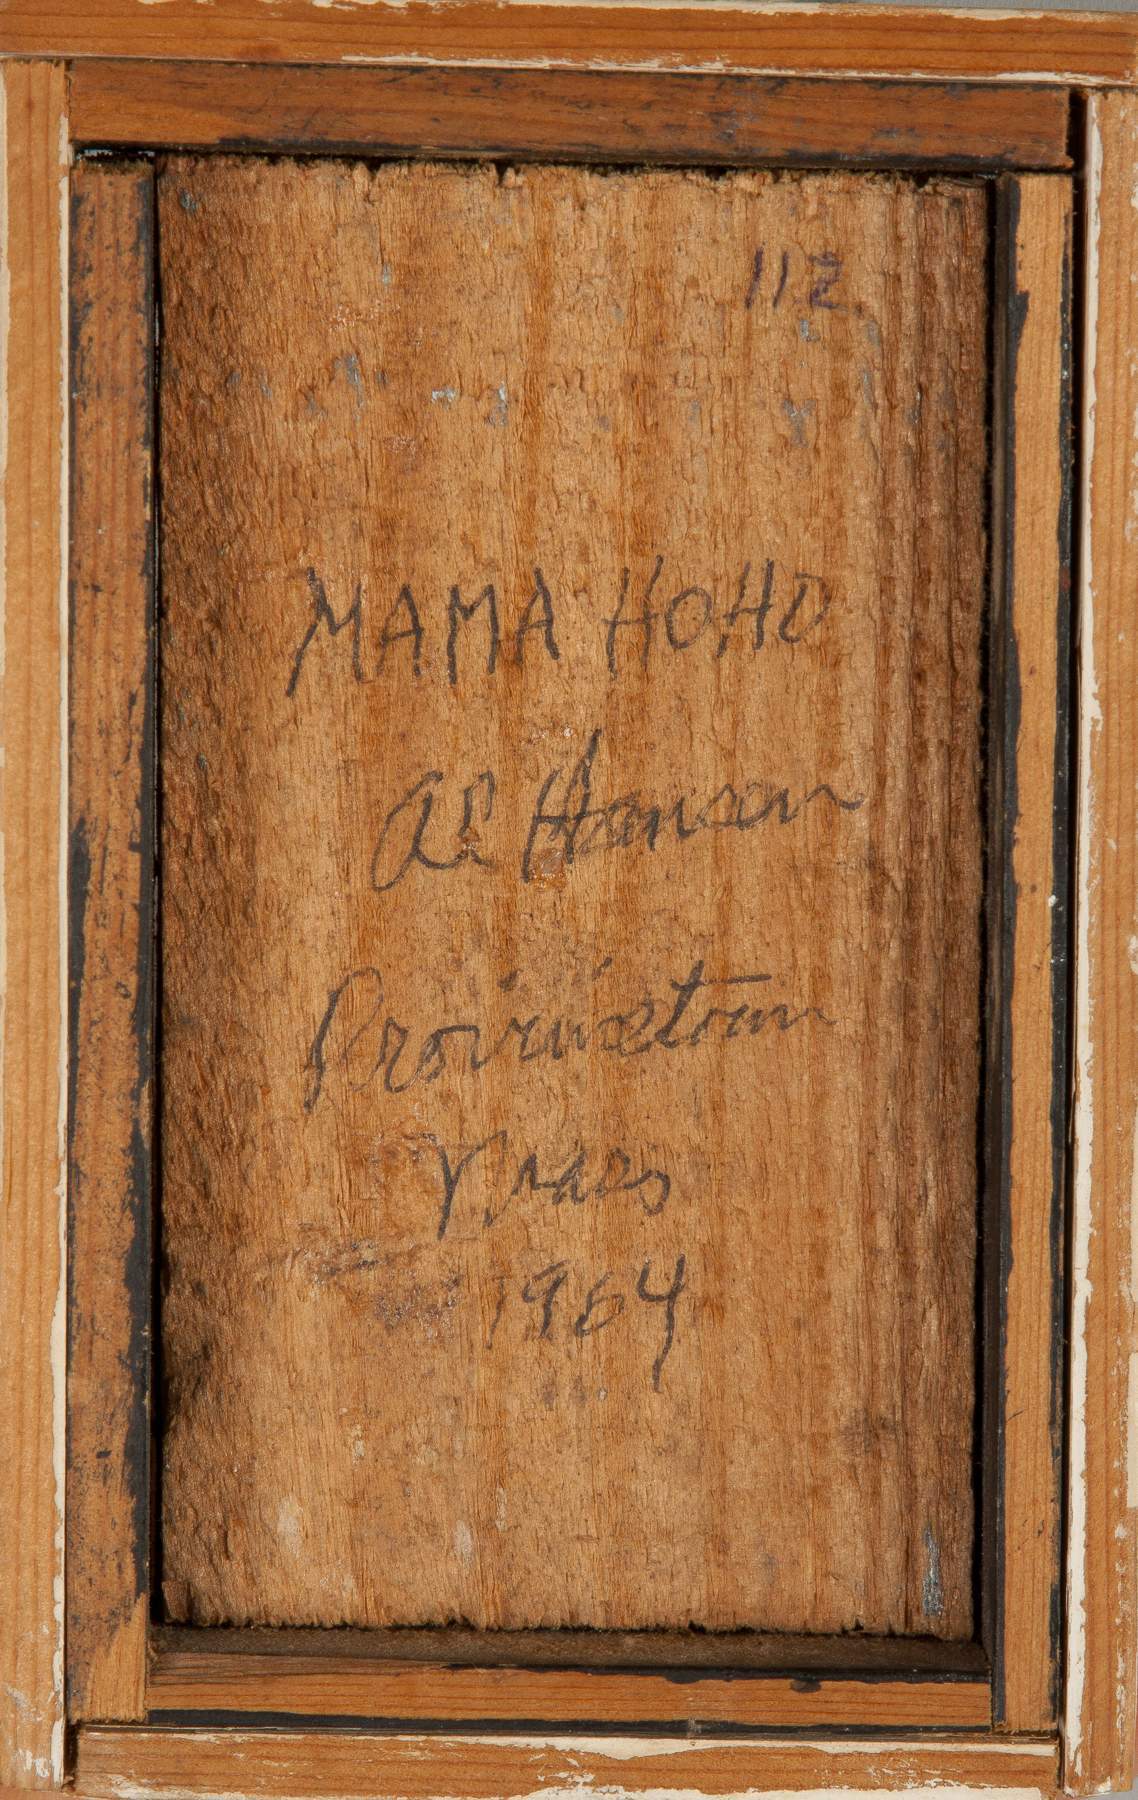 112
MAMA HOHO
Al Hansen
Provincetown
Mass
1964